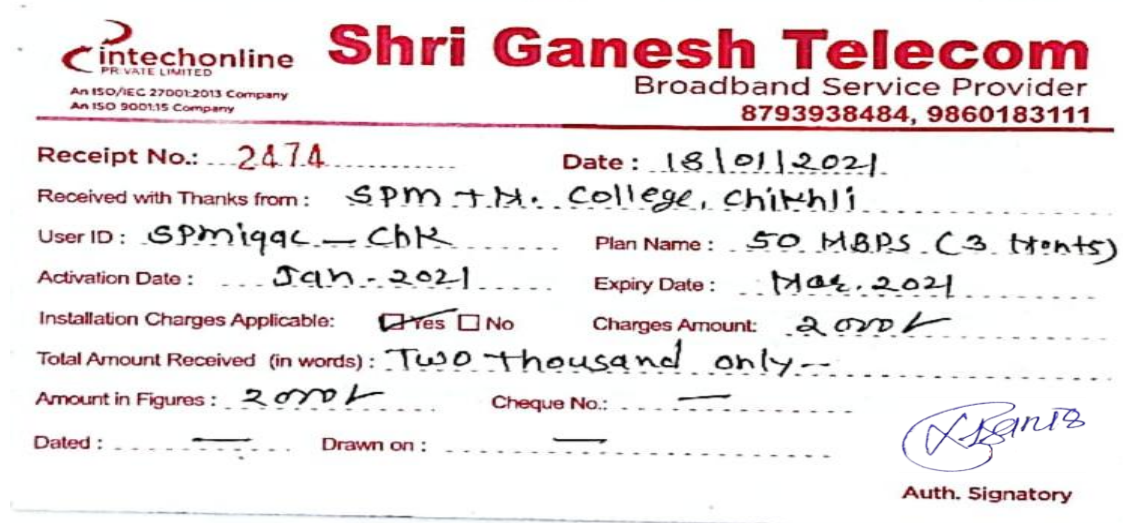 intechonline Shri Ganesh Telecom
PRIVATE LIMITED
Broadband Service Provider
An ISO/IEC 27001:2013 Company
An ISO 9001:15 Company
8793938484, 9860183111
Receipt No.: 2474 Date : 18/01/2021
Received with Thanks from : SPM T.M. College, Chikhli
User ID : SPMiqac - Chk Plan Name : 50 MBPS (3 Monts)
Activation Date : Jan - 2021 Expiry Date : Mar. 2021
Installation Charges Applicable: Yes No Charges Amount: 2000/-
Total Amount Received (in words) : Two thousand only --
Amount in Figures : 2000/- Cheque No.: —
Dated : — Drawn on : —
Auth. Signatory